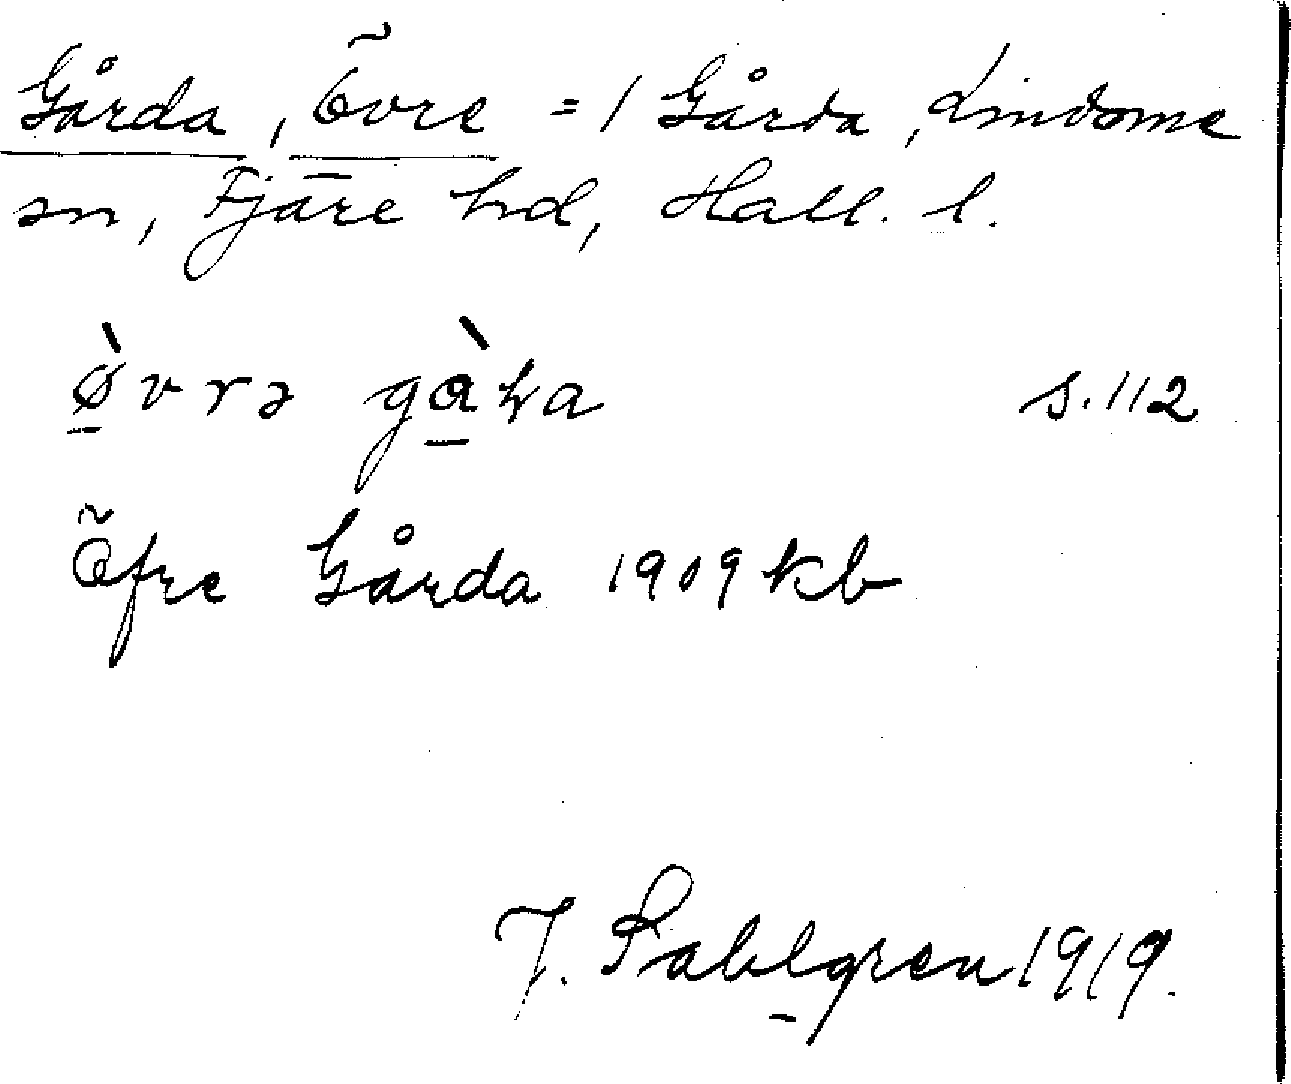 Gårda, Övre = 1 Gårda, Lindome
sn, Fjäre hd, Hall. l.
ø̀vrə gàka s. 112
Öfre Gårda 1909 kb
J. Sahlgren 1919.